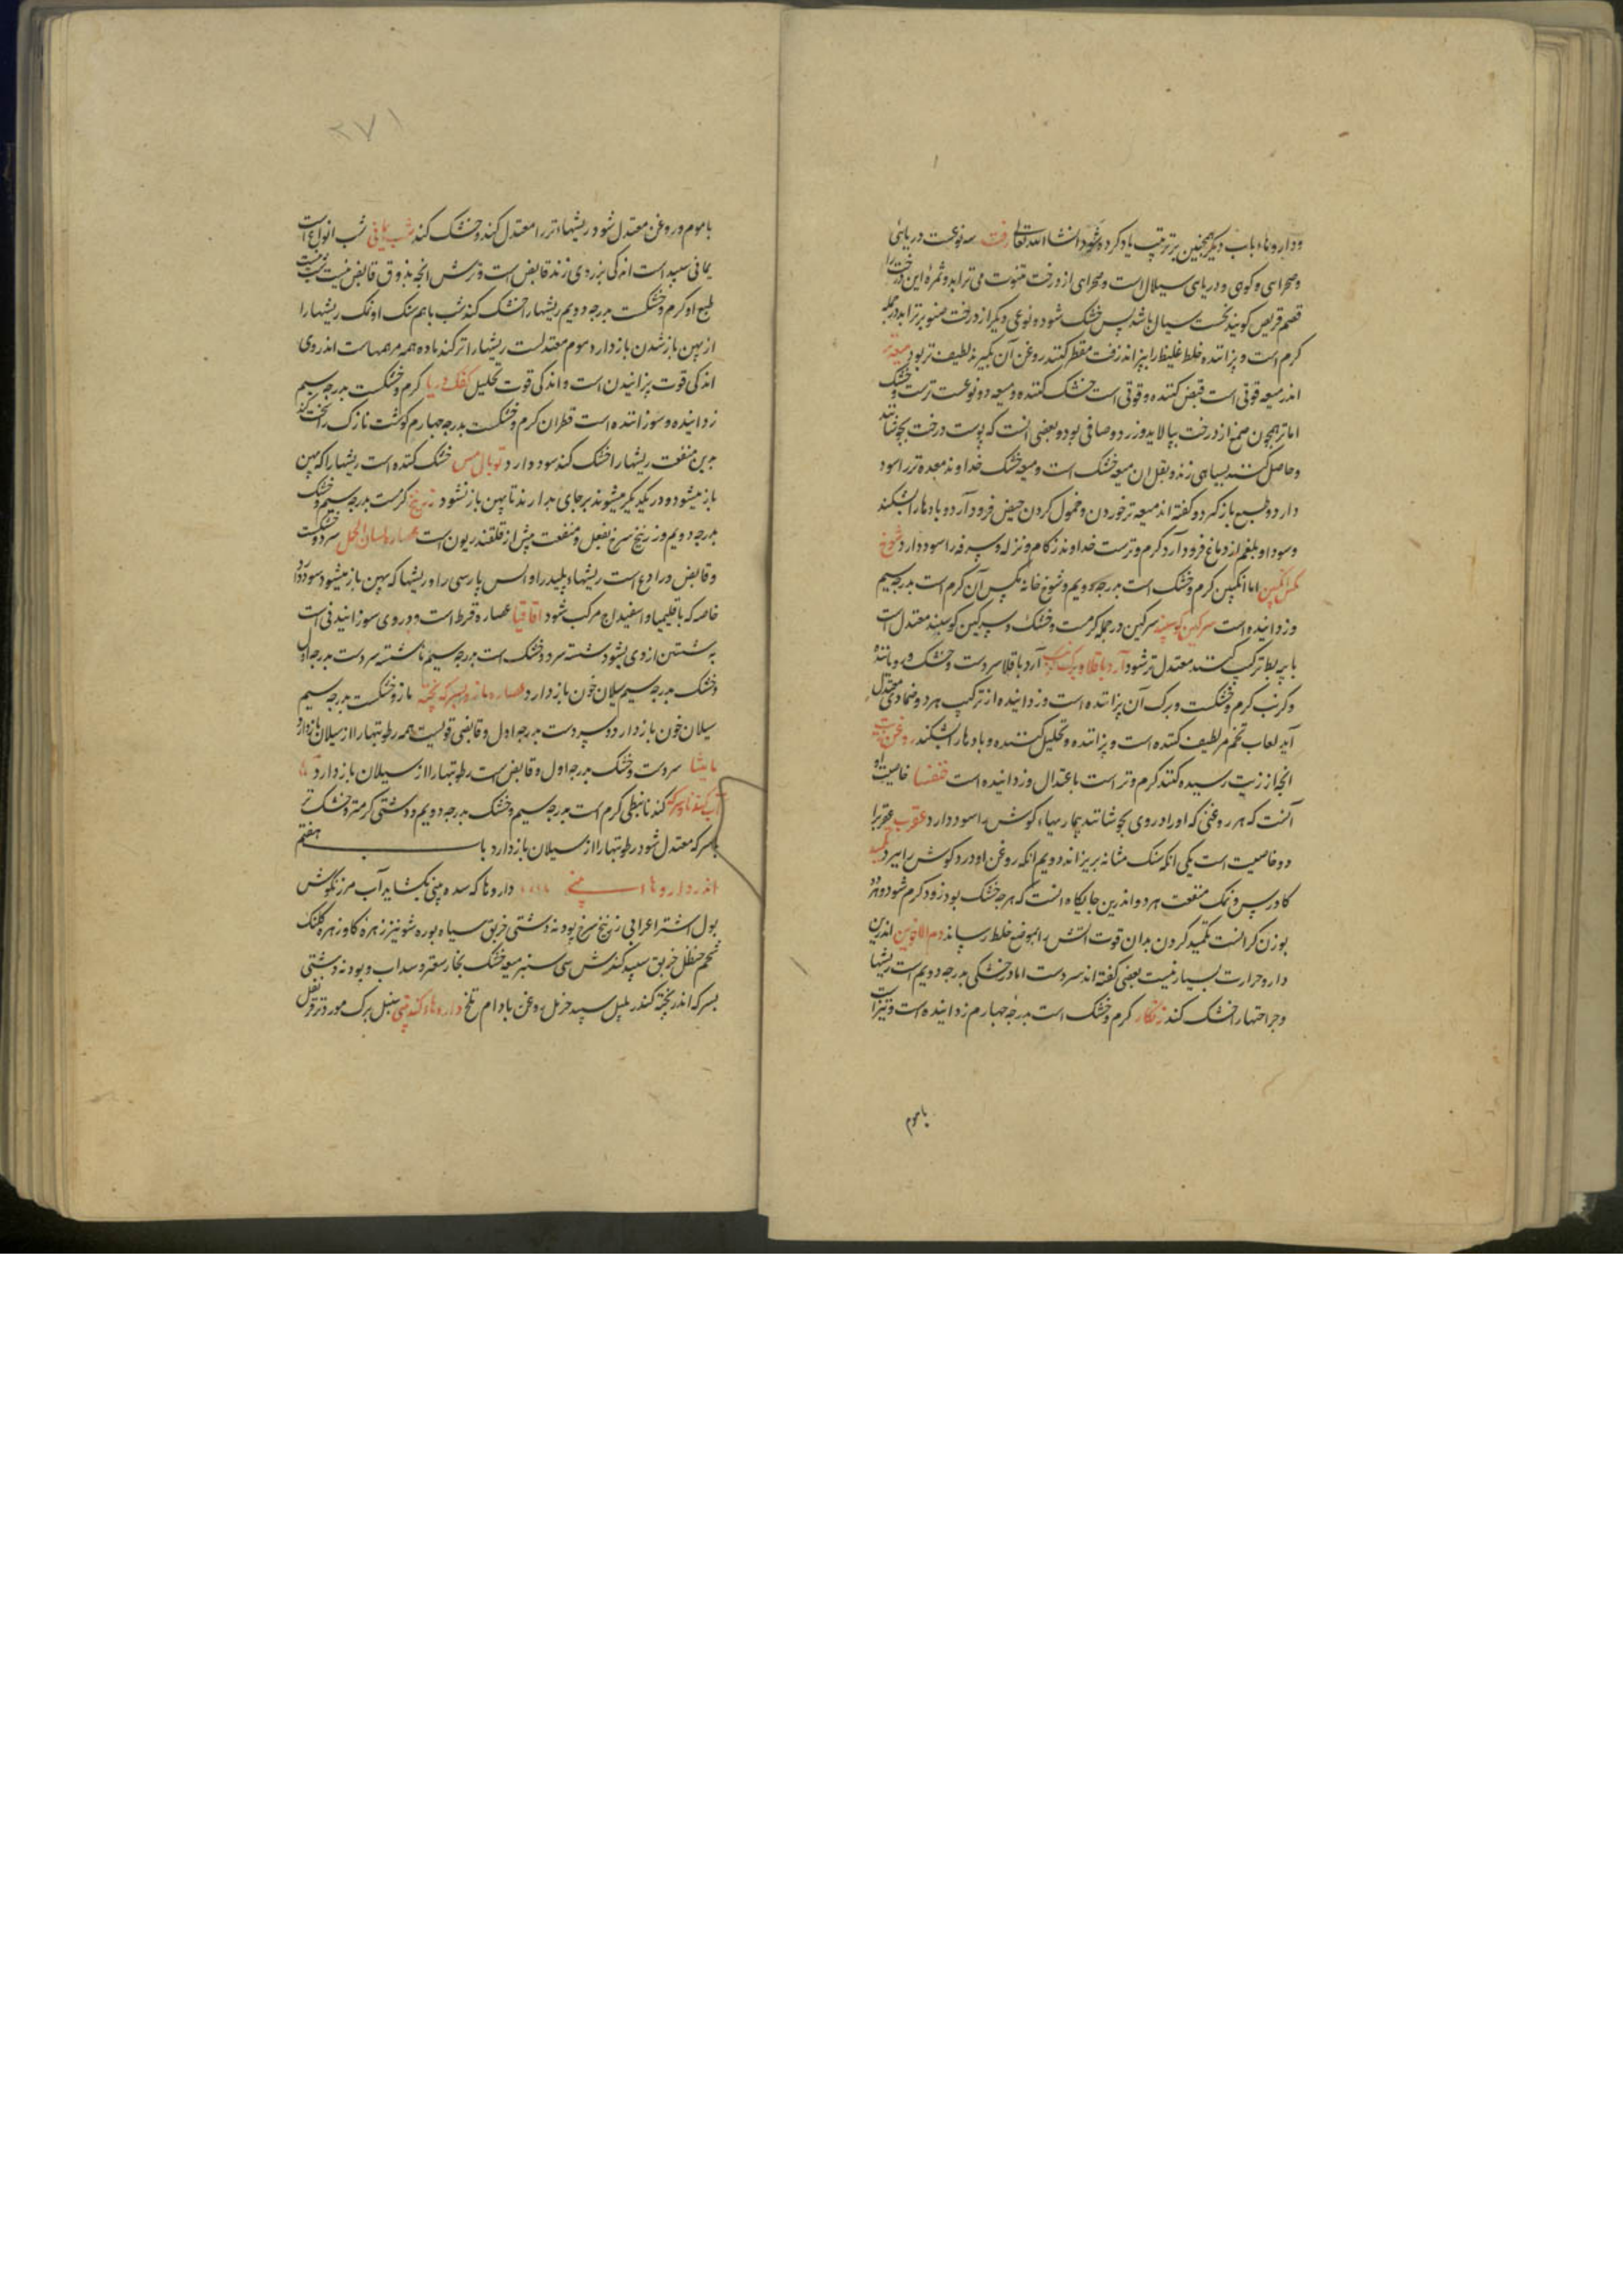 وداروهاء باب دیگر همچنین بر ترتیب یاد کرده شود انشاالله تعالی زفت سه نوعست دریائی
وصحرای و کوهی و دریای سیلال است وصحرای از درخت تنوب می ترابد و ثمره این درخت را
قضم قریص کویند نخست سیال باشد پس خشک شود و نوعی دیگر از درخت صنوبر ترابد در جمله
کرم است و پزاننده خلط غلیظ را بپزاند زفت مقطر کنند روغن آن بگیرند لطیف تر بود میعه تر
اندر میعه قوتی است قبض کننده و قوتی است خشک کننده و میعه دو نوعست ترست و خشک
اما تر همچون صمغ از درخت بپالاید و زرد و صافی بود و بعضی آنست که پوست درخت بجوشانند
وحاصل کنند بسیاهی زند و ثفل ان میعه خشک است و میعه خشک خداوند معده تر را سود
دارد و طبع باز کیرد و کفته اند میعه تر خوردن و حمول کردن حیض فرود آرد و بادها را بشکند
وسودا و بلغم از دماغ فرود آرد کرم و ترست خداوند زکام و نزله و سرفه را سود دارد شوخ
مکس انکبین اما انکبین کرم و خشک است بدرجه دویم و شوخ خانه مکس آن کرم است بدرجه سیم
و زداینده است سرکین کوسپند سرکین در جمله کرمست و خشک و سرکین کوسپند معتدل است
با پیه بط ترکیب کنند معتدل تر شود آرد باقلا و برک کرنب آرد باقلا سردست و خشک
و کرنب کرم و خشکست و برک آن پزاننده است و زداینده از ترکیب هر دو ضمادی معتدل
آید لعاب تخم مر لطیف کننده است و پزاننده و تحلیل کننده و بادها را بشکند روغن زیت
انجه از زیت رسیده کنند کرم و تر است باعتدال و زداینده است خنفسا خاصیت او
آنست که هر روغنی که او را در وی بجوشانند بیماریهاء کوش را سود دارد عقرب عقرب را
دو خاصیت است یکی انکه سنک مثانه بریزاند دویم انکه روغن او درد کوش را ببرد
کاورس و نمک منفعت هر دو اندرین جایکاه انست که هر چه خشک بود زود کرم شود و هر چه
بوزن کرانست تکمید کردن بدان قوت آتش را بموضع خلط رساند دم الاخوین اندرین
دارو حرارت بسیار نیست بعضی کفته اند سردست اما در خشکی بدرجه دویم است ریشها
و جراحتها را خشک کند زنکار کرم و خشک است بدرجه چهارم زداینده است و تیز است
با موم
۲۷۱
با موم و روغن معتدل شود ریشهاء تر را معتدل کند و خشک کند شب یمانی شب انواع است
یمانی سپید است اندکی بزردی زند قابض است و ترش انچه بذوق قابض نیست شب نیست
طبع او کرم و خشکست بدرجه دویم ریشها را خشک کند شب با هم سنک او نمک ریشها را
از پهن باز شدن باز دارد موم معتدلست ریشها را تر کند ماده همه مرهمهاست اندر وی
اندکی قوت پزانیدن است و اندکی قوت تحلیل کفک دریا کرم و خشکست بدرجه سیم
زداینده و سوزاننده است قطران کرم و خشکست بدرجه چهارم کوشت نازک را
برین منفعت ریشها را خشک کند سود دارد توبال مس خشک کننده است ریشها را که پهن
باز میشود و در یکدیکر میشوند بر جای بدارند تا پهن باز نشود زرنیخ کرمست بدرجه سیم و خشک
بدرجه دویم و زرنیخ سرخ بفعل و منفعت بیش از قلقندریون است عصاره لسان الحمل سرد و خشکست
و قابض و رادع است ریشهاء پلید را و آتش پارسی را و ریشها که پهن باز میشود سود دارد
خاصه که با قلیمیا و اسفیداج مرکب شود اقاقیا عصاره قرظ است و در وی سوزانیدنی است
به شستن از وی بشود شسته سرد و خشک است بدرجه سیم ناشسته سردست بدرجه اول
و خشک بدرجه سیم سیلان خون باز دارد عصاره مازو بسرکه پخته مازو خشکست بدرجه سیم
سیلان خون باز دارد و سردست بدرجه اول و قابضی قویست همه رطوبتها را از سیلان باز دارد
مامیثا سردست و خشک بدرجه اول و قابض است رطوبتها را از سیلان باز دارد
آب کندنا و سرکه کندنا نبطی کرم است بدرجه سیم و خشک بدرجه دویم و دشتی کرمتر و خشک تر
با سرکه معتدل شود رطوبتها را از سیلان باز دارد باب هفتم
اندر داروهاء بینی داروها که سده بینی بکشاید آب مرزنکوش
بول اشتر اعرابی زرنیخ سرخ پودنه دشتی خربق سیاه بوره شونیز زهره کاو زهره کلنک
شحم حنظل خربق سپید کندش سی سنبر میعه خشک بخار سعتر و سداب و پودنه دشتی
بسرکه اندر پخته کندر پلپل سپید خردل روغن بادام تلخ داروهاء کند بینی سنبل برک مورد تر قرنفل